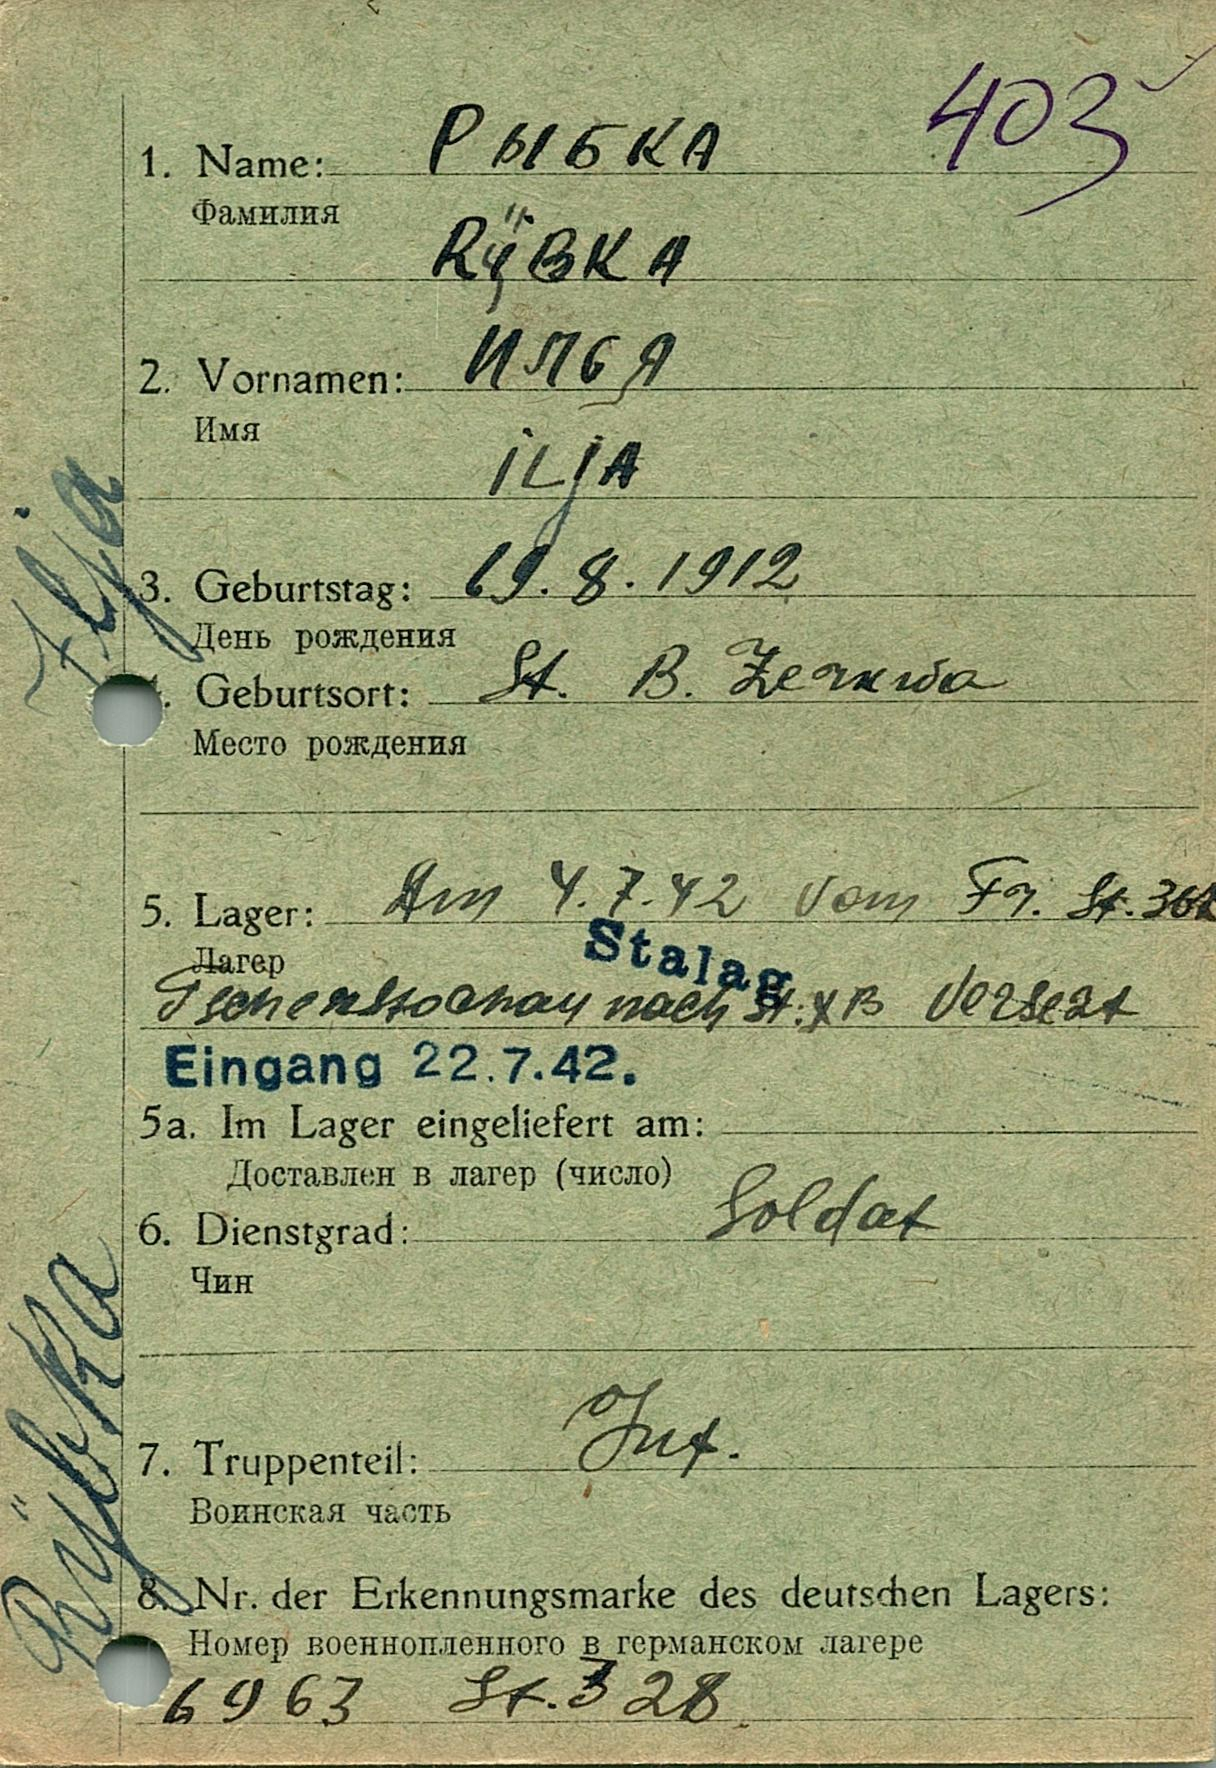 403
1. Name: РЫБКА
Фамилия
RÿBKA
2. Vornamen: ИЛЬЯ
Имя
iLjA
Ilja
3. Geburtstag: 19.8.1912
День рождения
4. Geburtsort: St. B. Zerkwa
Место рождения
5. Lager: Am 4.7.42 vom Fr. St.
Лагер
Stalag
Tschenstochau nach St. XB Versezt
Eingang 22.7.42.
5a. Im Lager eingeliefert am:
Доставлен в лагер (число)
6. Dienstgrad: Soldat
Чин
7. Truppenteil: Inf.
Воинская часть
Rÿbka
8. Nr. der Erkennungsmarke des deutschen Lagers:
Номер военнопленного в германском лагере
6963 St. 328